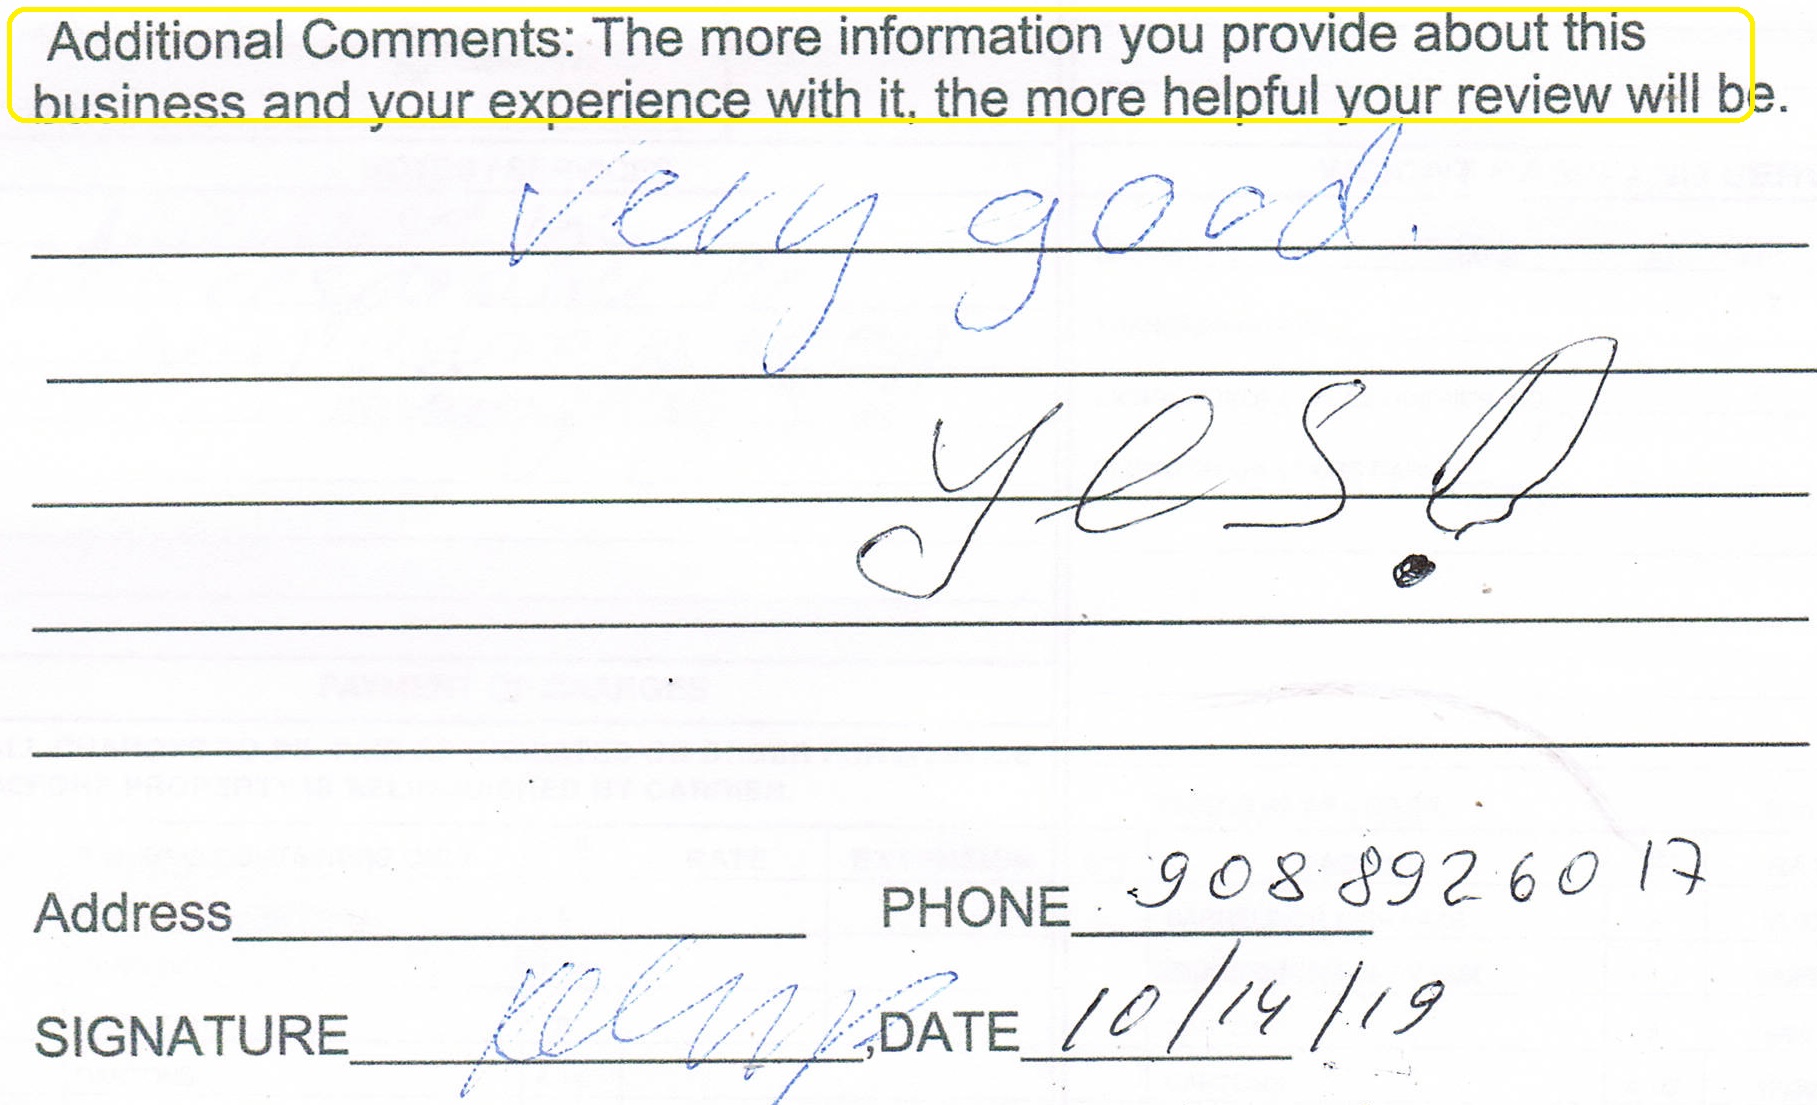 Additional Comments: The more information you provide about this
business and your experience with it, the more helpful your review will be.
very good.
yes!
Address PHONE 9088926017
SIGNATURE ,DATE 10/14/19